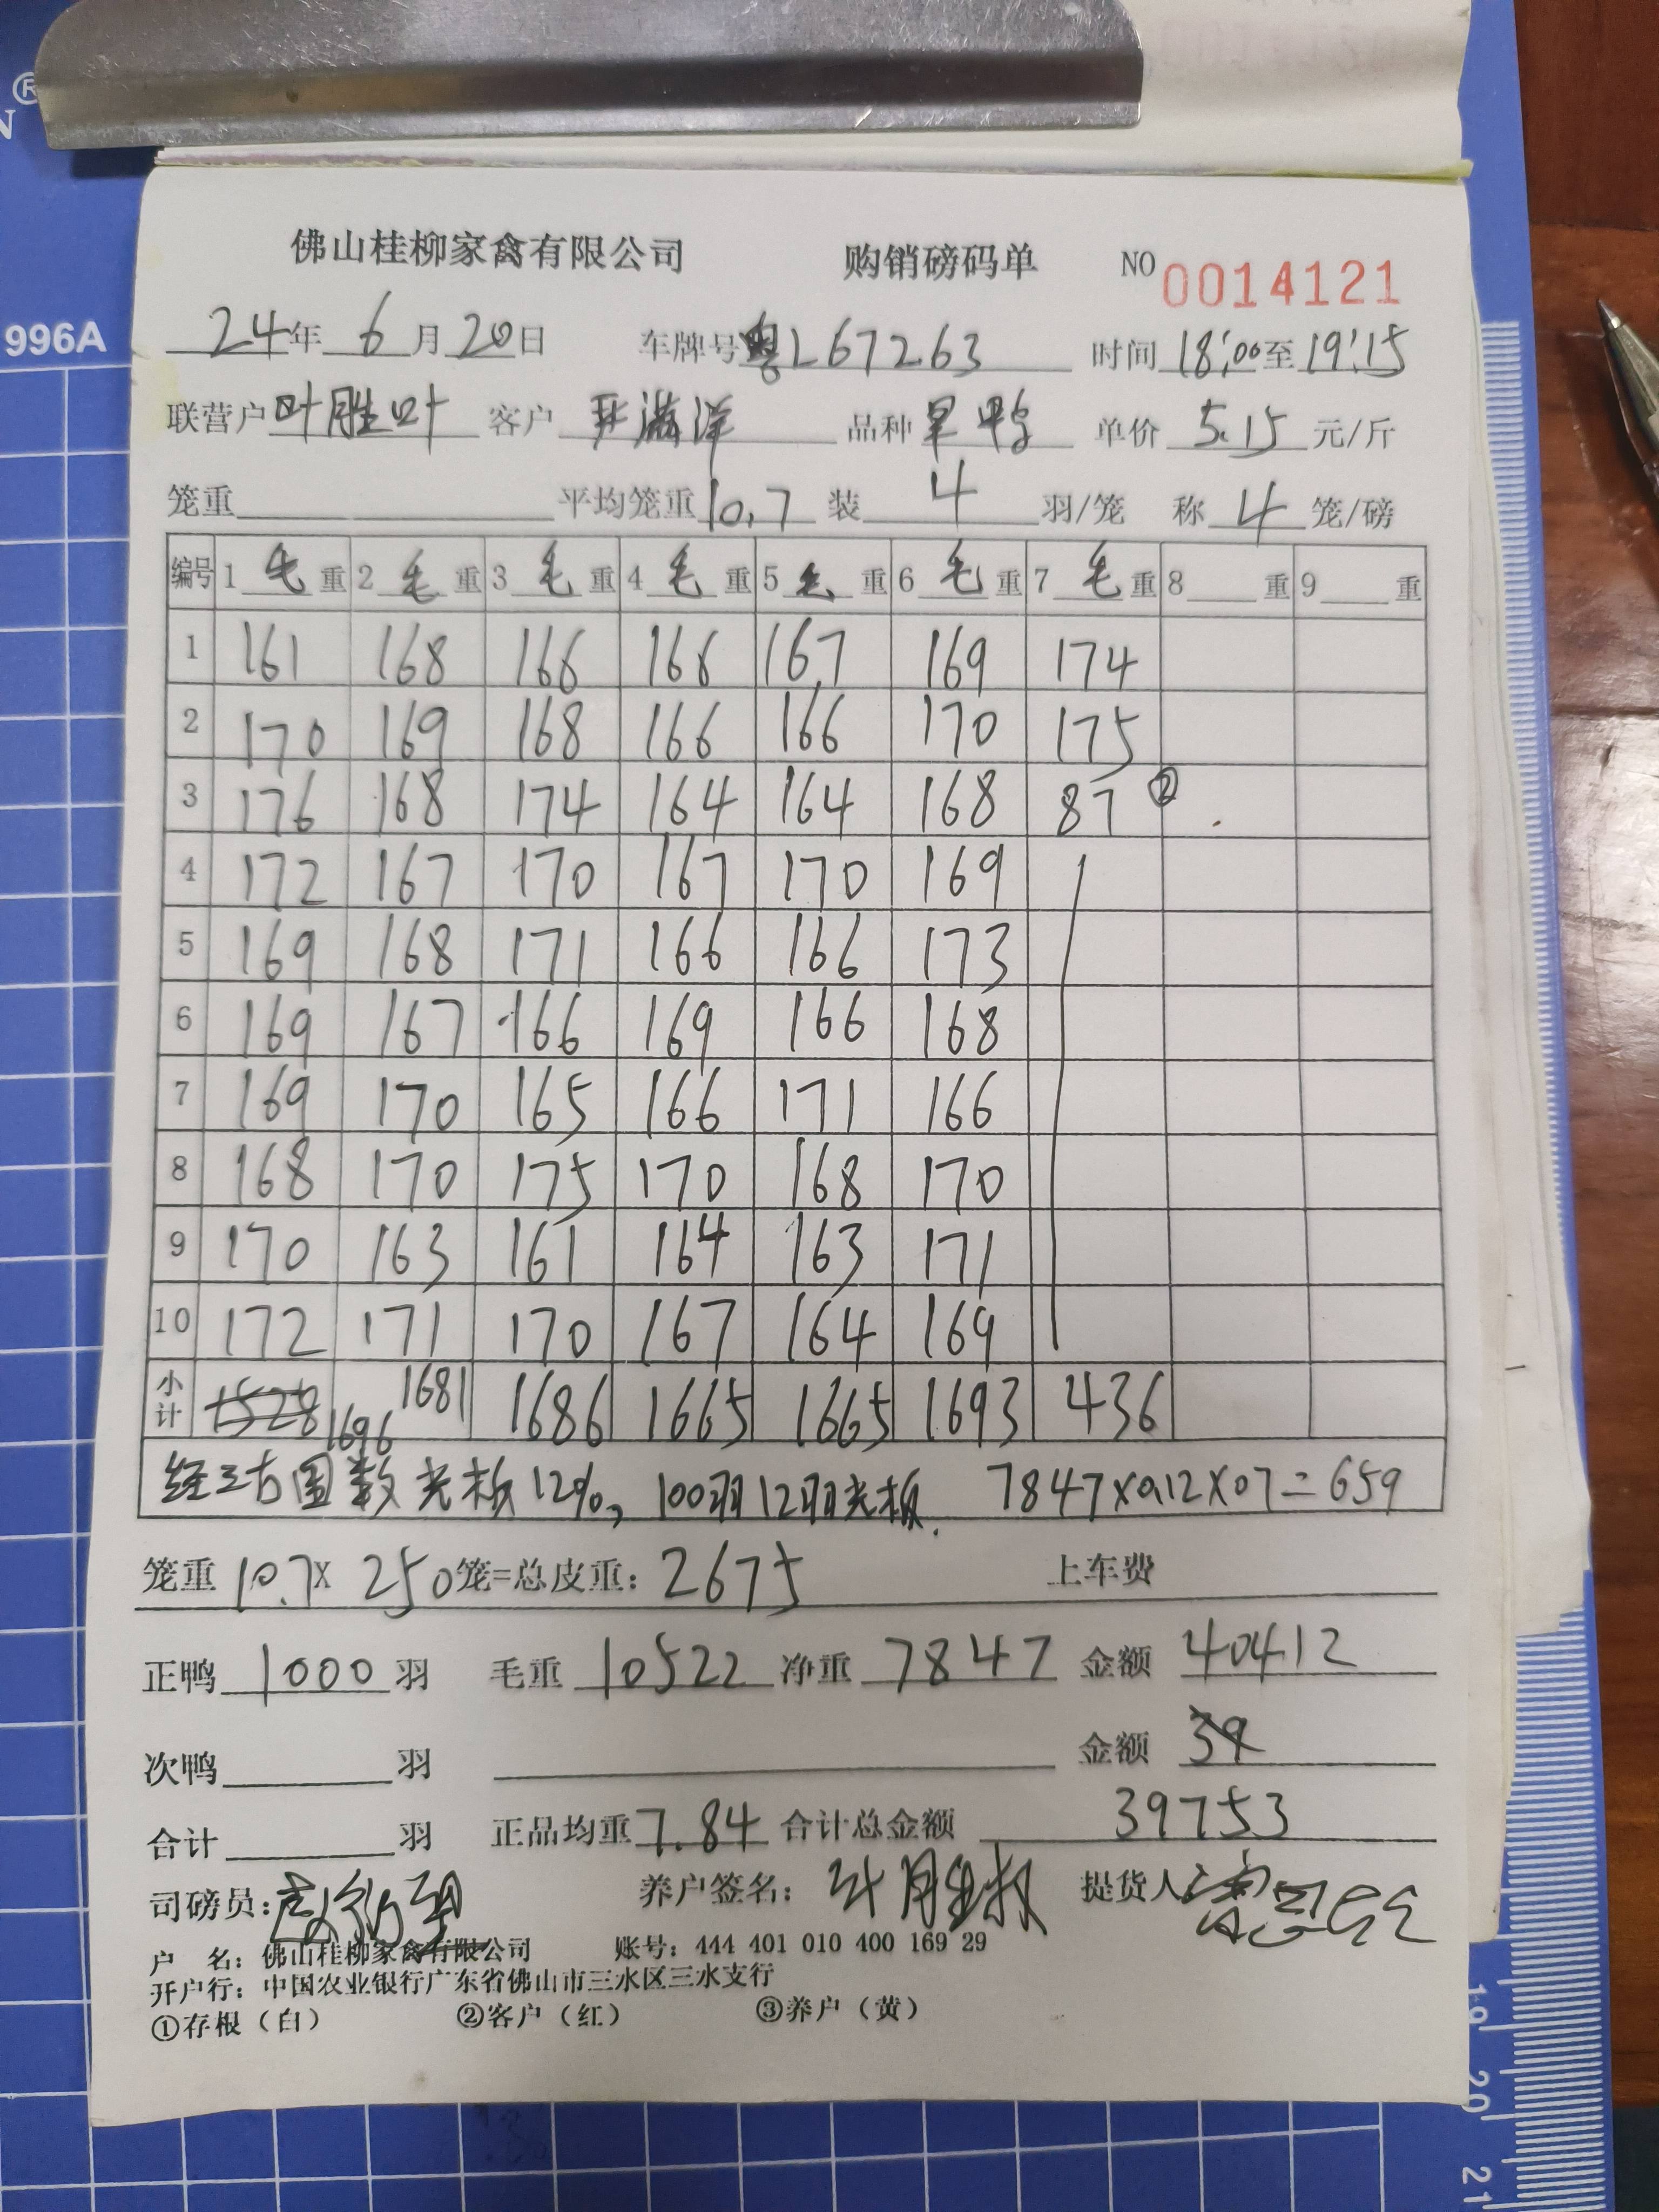 996A
佛山桂柳家禽有限公司 购销磅码单 NO 0014121
24年 6月 20日 车牌号 粤L67263 时间 18:00至19:15
联营户 叶胜叶 客户 洋 品种 旱鸭 单价 5.15 元/斤
笼重 平均笼重 10.7 装 4 羽/笼 称 4 笼/磅
编号 1 毛 重 2 毛 重 3 毛 重 4 毛 重 5 毛 重 6 毛 重 7 毛 重 8 重 9 重
1 161 168 166 166 167 169 174
2 170 169 168 166 166 170 175
3 176 168 174 164 164 168 87 ②
4 172 167 170 167 170 169
5 169 168 171 166 166 173
6 169 167 166 169 166 168
7 169 170 165 166 171 166
8 168 170 175 170 168 170
9 170 163 161 164 163 171
10 172 171 170 167 164 169
小计 1528 1696 1681 1686 1665 1665 1693 436
数光板12%, 100羽12羽光板. 7847×0.12×07=659
笼重 10.7× 250 笼=总皮重: 2675 上车费
正鸭 1000 羽 毛重 10522 净重 7847 金额 40412
次鸭 羽 金额
合计 羽 正品均重 7.84 合计总金额 39753
司磅员: 养户签名: 提货人
户 名: 佛山桂柳家禽有限公司 账号: 444 401 010 400 169 29
开户行: 中国农业银行广东省佛山市三水区三水支行
①存根（白） ②客户（红） ③养户（黄）
19
20
21